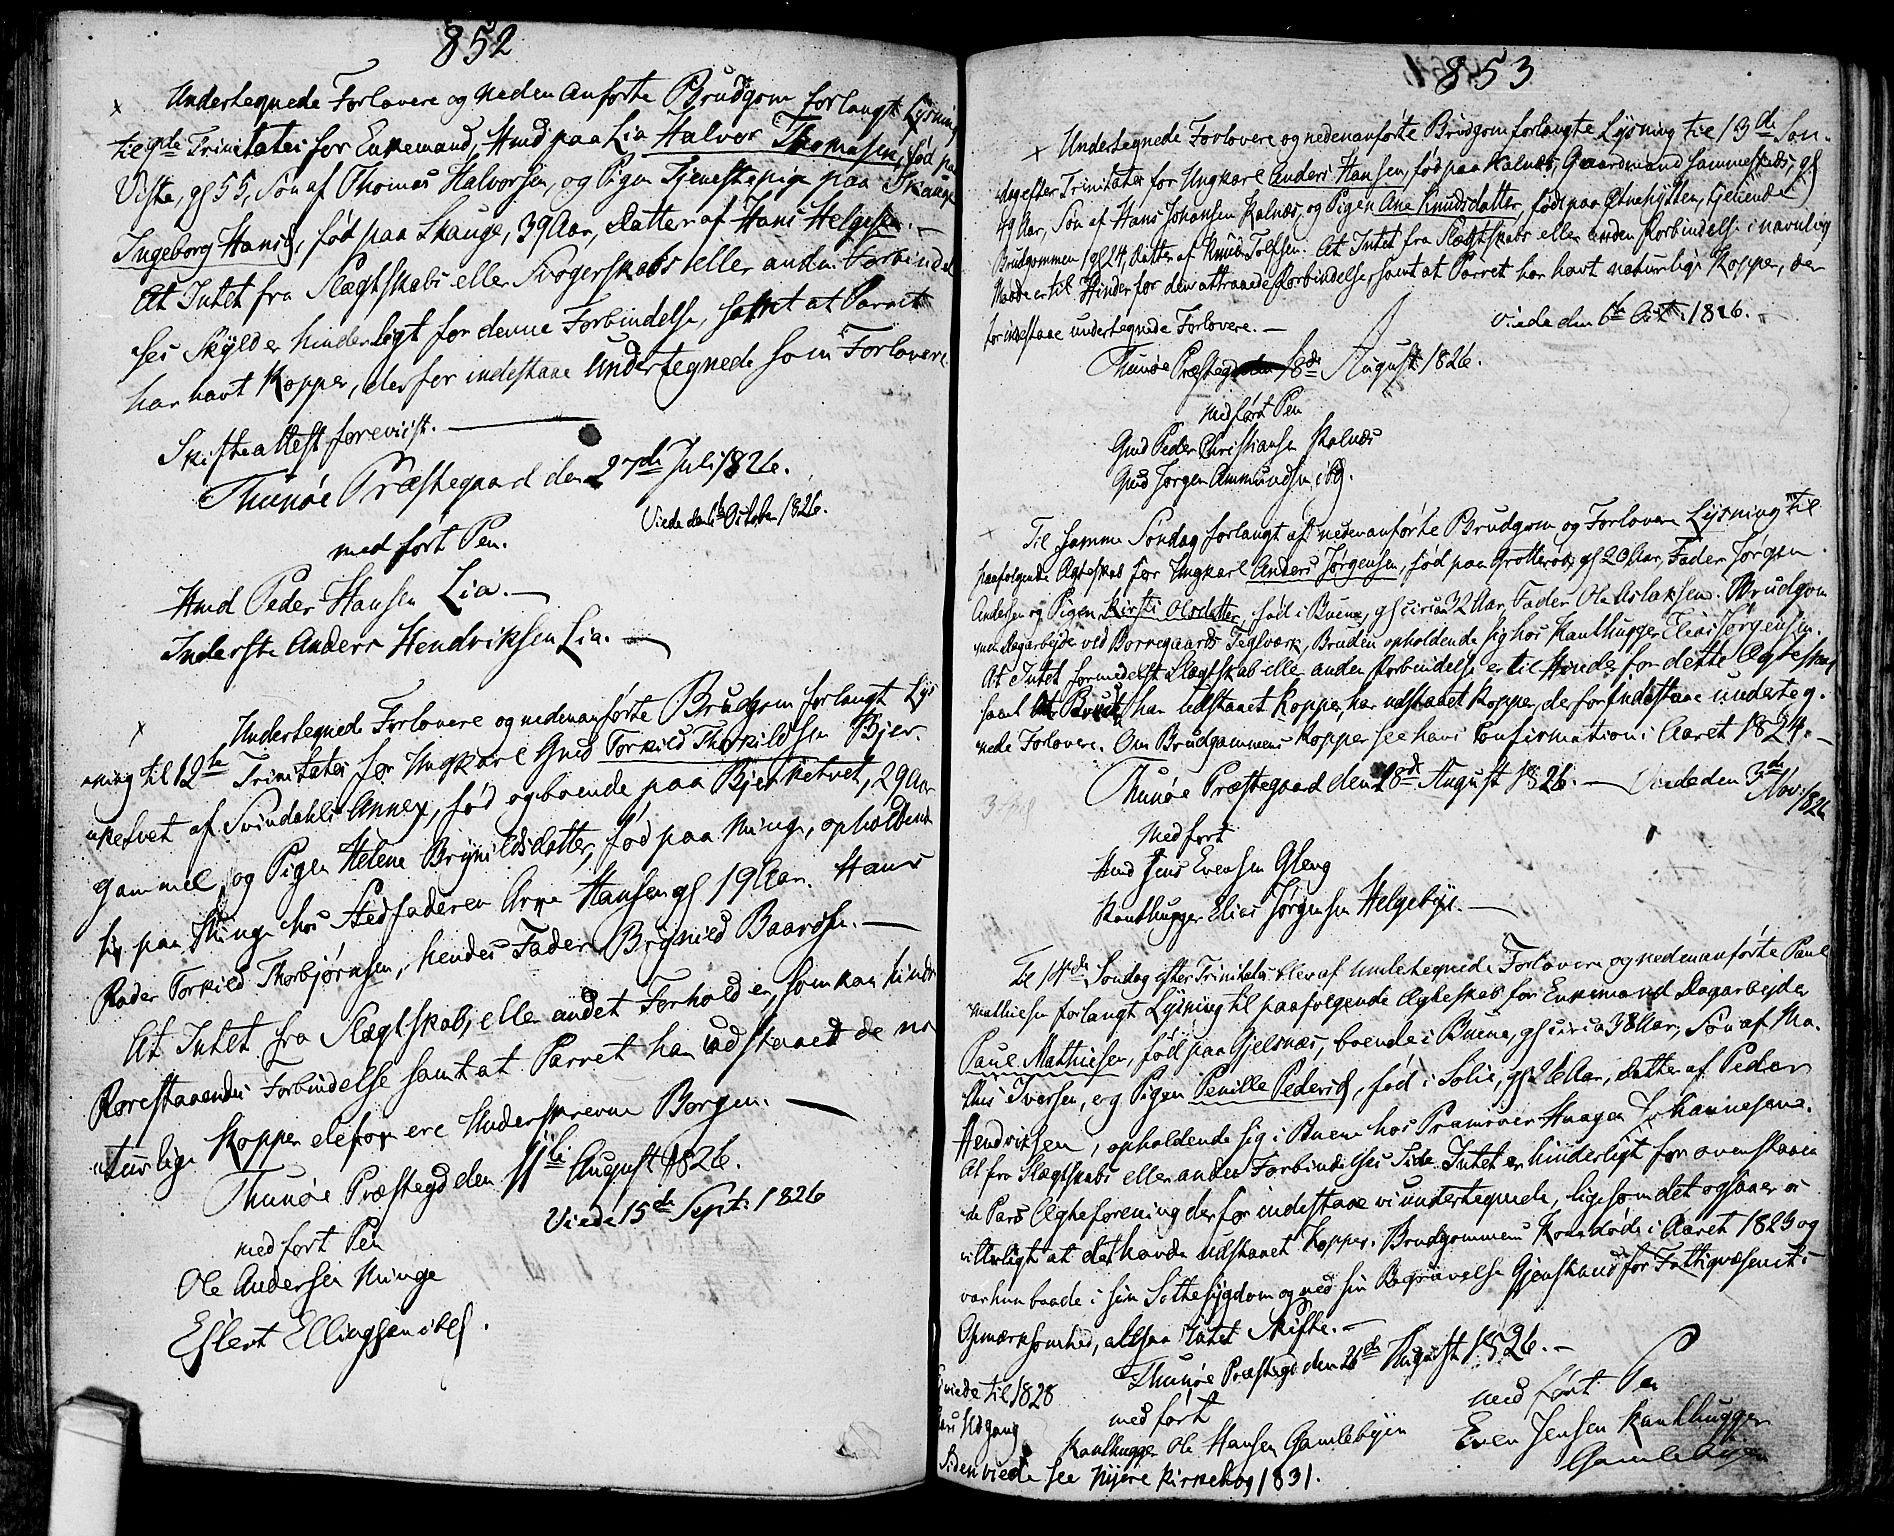 852
x Undertegnede Forlovere og neden anførte Brudgom forlangte Lysning
til 9de Trinitatis for Enkemand, Hmd paa Lia Halvor Thomasen, fød paa
Vista, gl 55, Søn af Thomas Halvorsen, og Pigen Tjenestepige paa Skauge
Ingeborg Hansd, fød paa Skauge, 39 Aar, Datter af Hans Helgesen. —
At Intet fra Slægtskabs eller Svogerskabs eller anden Forbindel
ses Skyld er hinderligt for denne Forbindelse, samt at Parret
har havt Kopper, derfor indestaae Undertegnede som Forlovere
Skifteattest foreviist. —
Thunøe Præstegaard den 27de Juli 1826.
Viede den 6te October 1826.
med ført Pen.
Hmd Peder Hansen Lia. —
Inderste Anders Hendriksen Lia. —
x Undertegnede Forlovere og nedenanførte Brudgom forlangt Lys
ning til 12te Trinitatis for Ungkarl Gmd Torkild Thorkildsen Bjer-
ketvet af Svindahls Annex, fød og boende paa Bjerketvet, 29 Aar
gammel, og Pigen Helene Brynildsdatter, fød paa Ninge, opholdende
sig paa Ninge hos Stedfaderen Arne Hansen gl 19 Aar. Hans
Fader Torkild Thorbjørnsen, hendes Fader Brynild Baardsen. —
At Intet fra Slægtskabs, eller andet Forhold er, som kan hindre
Forestaaendes Forbindelse samt at Parret har udstaaet de na
turlige Kopper derfor ere Underskrevne Borgen. —
Thunøe Præstegd den 11te August 1826.
Viede 15de Sept: 1826
med ført Pen
Ole Andersen Ninge
Eflert Ellingsen ibd.
853
x Undertegnede Forlovere og nedenanførte Brudgom forlangte Lysning til 13de Søn-
dag efter Trinitatis for Ungkarl Anders Hansen, fød paa Kalnæs, Gaardmand sammesteds, gl
49 Aar, Søn af Hans Johansen Kalnæs, og Pigen Ane Knudsdatter, fød paa Ødnehytten, tjenende
Brudgommen, gl 24, Datter af Knud Tolfsen. At Intet fra Slægtskabs eller anden Forbindelse i navnlig
Maade er til Hinder for den attraaede Forbindelse, samt at Parret har havt naturlige Kopper, der
for indestaae undertegnede Forlovere. —
Viede den 6te Oct: 1826. —
Thunøe Præstegd den 18de August 1826.
med ført Pen
Gmd Peder Christiansen Kalnæs
Gmd Jørgen Ammundsen ibd.
x Til samme Søndag forlangt af nedenanførte Brudgom og Forlovere Lysning til
paafølgende Ægteskab for Ungkarl Anders Jørgensen, fød paa Grotterød, gl 20 Aar, Fader Jørgen
Andersen og Pigen Kirsti Olsdatter, fød i Buene, gl circa 32 Aar, Fader Ole Aslaksen. Brudgom
men Dagarbejde ved Borregaards Teglværk, Bruden opholdende sig hos Kanthugger Elias Jørgensen.
At Intet formedelst Slægtskab elle anden Forbindelse er til Hinde for dette Ægteskab
samt at Parret har udstaaet Kopper, har udstaaet Kopper, derfor indestaae underteg-
nede Forlovere. Om Brudgommens Kopper see hans Confirmation i Aaret 1824. —
Thunøe Præstegaard den 18de August 1826. — Viede den 3de
Nov 1826
Med ført
Hmd Jens Evensen Gleng
Kanthugger Elias Jørgensen Helgebye. —
Til 14de Søndag efter Trinitatis blev af Undertegnede Forlovere og nedenanførte Paul
Mathiesen forlangt Lysning til paafølgende Ægteskab for Enkemand Dagarbejder
Paul Mathiesen, fød paa Gjelsnæs, boende i Buene, gl circa 38 Aar, Søn af Ma-
this Iversen, og Pigen Penille Pedersd, fød i Solie, gl 26 Aar, Datter af Peder
Hendriksen, opholdende sig i Buene hos Pramroer Haagen Johannesens.
At fra Slægtskabs eller anden Forbindelses Side Intet er hinderligt for ovenstaaen
de Pars Ægteforening derfor indestaae vi undertegnede, ligesom det ogsaa er os
vitterligt at det havde udstaaet Kopper. Brudgommens Kone døde i Aaret 1825 og
var hun baade i sin Sottesygdom og ved sin Begravelse Gjenstand for Fattigvæsenets
Opmærksomhed, altsaa intet Skifte. —
Thunøe Præstegd den 26de August 1826. —
viede til 1828
Udgang
Siden viede see Nyere Kirkebog 1831.
med ført
Kanthugger Ole Hansen Gamlebyen
med ført Pen
Even Jensen Kanthugger
Gamlebyen